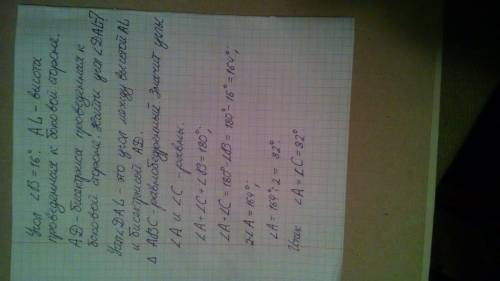 Угол ∠B=16° AL - высота
проведенная к боковой стороне.
AD - биссектриса проведенная к
боковой стороне. Найти угол ∠DAL?
Угол ∠DAL - это угол между высотой AL
и биссектрисой AD.
∆ ABC - равнобедренный значит углы
∠A и ∠C - равны.
∠A+∠C+∠B=180°
∠A+∠C=180°-∠B=180°-16°=164°;
2∠A=164°;
∠A=164°:2= 82°
Итак ∠A=∠C=82°